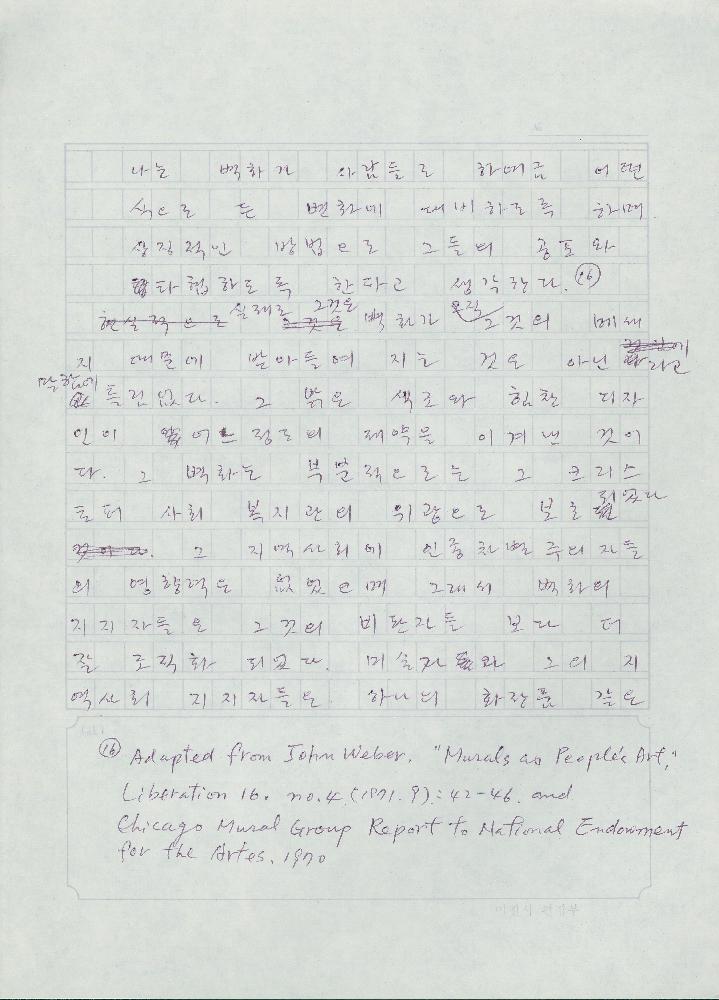 나는 벽화가 사람들로 하여금 어떤
식으로 든 변화에 대비하도록 하며
상징적인 방법으로 그들의 공포와
타협하도록 한다고 생각한다. ⑯
실제로 그것은 벽화가 오직 그것의 메세
지 때문에 받아들여 지는 것은 아닌 라고
말함에 틀림없다. 그 밝은 색조와 힘찬 디자
인이 어느 정도의 제약을 이겨낸 것이
다. 그 벽화는 부분적으로는 그 크리스
토퍼 사회 복지관의 위광으로 보호 되었다
. 그 지역사회에 인종차별주의자들
의 영향력은 없었으며 그래서 벽화의
지지자들은 그것의 비판자들 보다 더
잘 조직화 되었다. 미술가와 그의 지
역사회 지지자들은 하나의 화장품 같은
⑯ Adapted from John Weber. "Murals as People's Art,"
Liberation 16. no.4. (1971. 9): 42-46. and
Chicago Mural Group Report to National Endowment
for the Artes. 1970
미진사 편집부